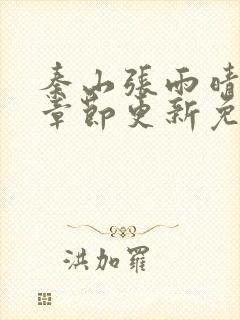 秦山張雨晴
章節更新免
洪加羅